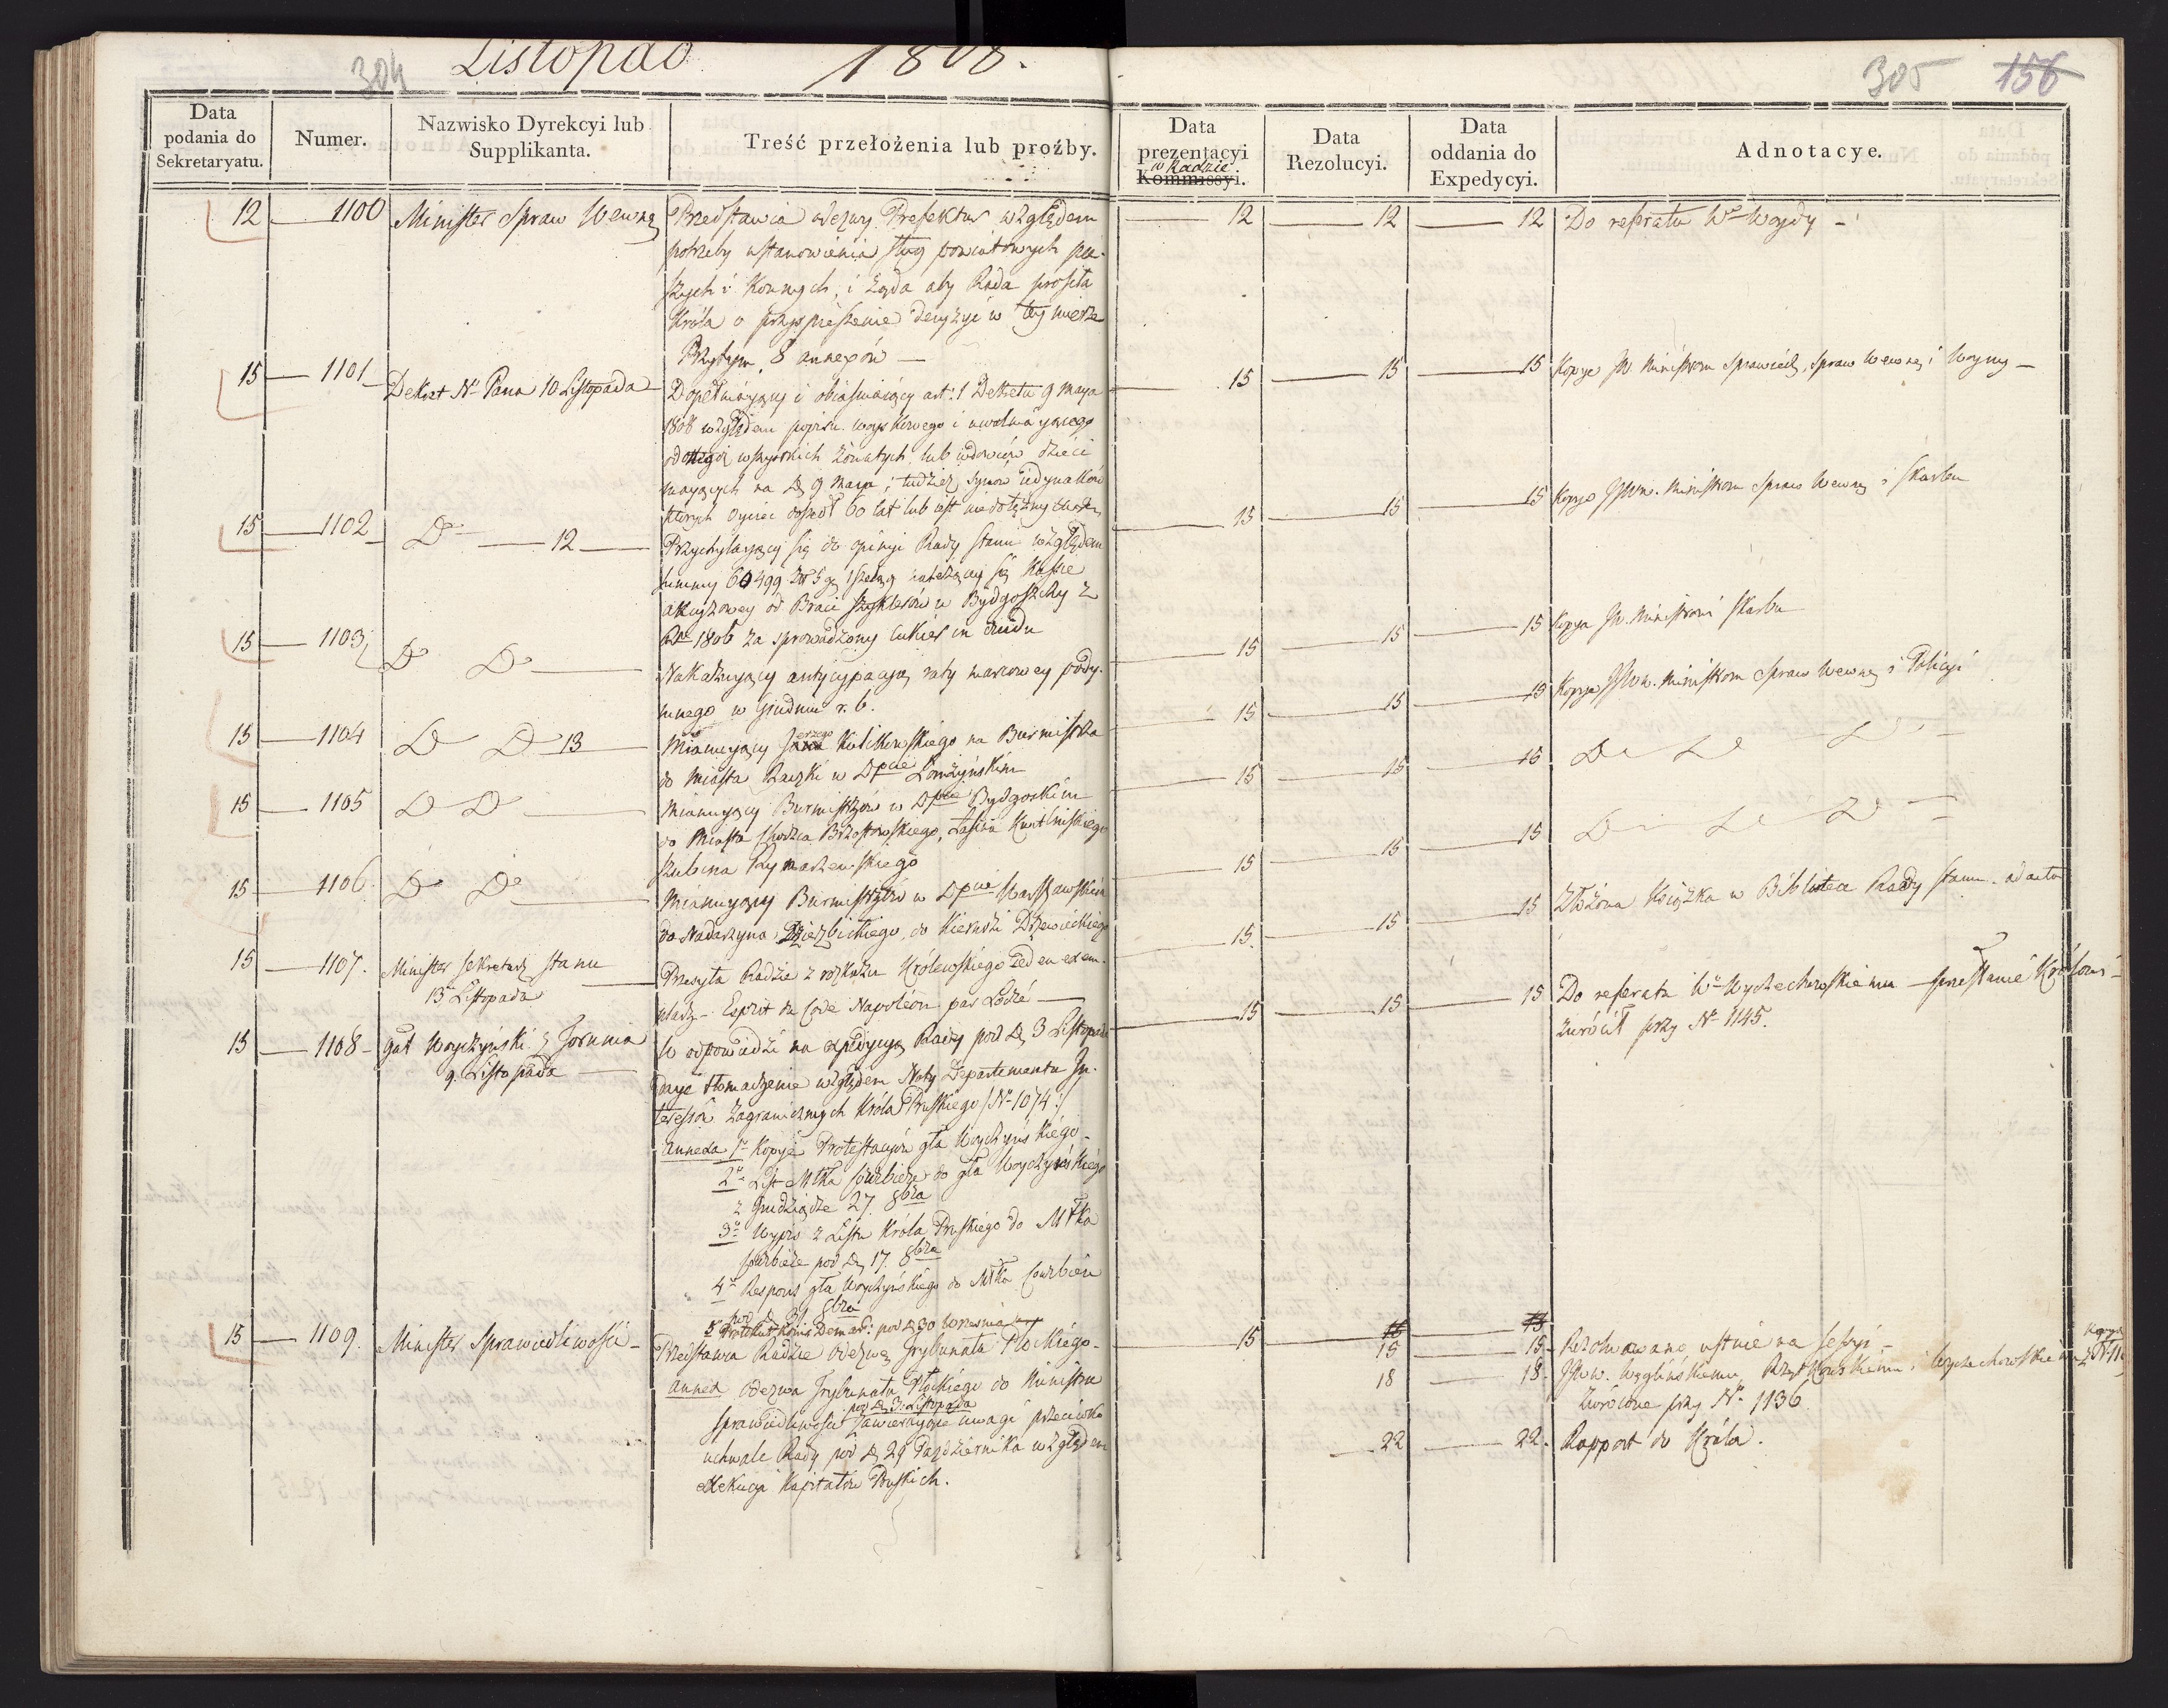 304 Listopad 1808.
305 156
Data podania do Sekretaryatu.
Numer.
Nazwisko Dyrekcyi lub Supplikanta.
Treść przełożenia lub proźby.
Data prezentacyi w Radzie Kommissyi.
Data Rezolucyi.
Data oddania do Expedycyi.
Adnotacye.
12 — 1100 Minister Spraw Wewnę
Przedstawia odezwy Prefektur względem
potrzeby ustanowienia sług powiatowych pie-
szych i konnych, i żąda aby Rada prosiła
Króla o przyspieszenie decyzyi w tey mierze
Przytym 8 annexów —
12 — 12 — 12 Do referatu Wo Woydy —
15 — 1101 Dekret No Pana 10 Listopada
Dopełniaiący i obiaśniaiący art: 1 Dekretu 9 Maya
1808 względem popisu woyskowego i uwalniaiącego
od niego wszystkich żonatych lub wdowców dzieci
maiących na D. 9 Maya; tudzież synów iedynaków
których oyciec doszedł 60 lat lub iest niedołężny
15 — 15 — 15 Kopye JW. Ministrom Sprawiedl, Spraw Wewnę i Woyny —
15 — 1102 Do — 12 —
Przychylaiący się do opinji Rady Stanu względem
summy 60499 Złł 5 g 1 szeląg należącey się Kassie
akcyzowey od Braci Szyklerów w Bydgoszczy z
Ru 1806 za sprowadzony cukier in crudo
15 — 15 — 15 Kopye JJWW. Ministrom Spraw Wewnę i Skarbu
15 — 1103 Do Do —
Nakazuiący antycypacyą raty marcowey pody-
mnego w Grudniu r. b.
15 — 15 — 15 Kopya JW. Ministrowi Skarbu
15 — 1104 Do Do 13
Mianuiący Jerzego Kulikowskiego na Burmistrza
do Miasta Raczki w Dpcie Łomżyńskim
15 — 15 — 15 Kopye JJWW. Ministrom Spraw Wewnę i Policyi
15 — 1105 Do Do —
Mianuiący Burmistrzów w Dpcie Bydgoskim
do Miasta Brzostowskiego, Łasina
Szubina Rymarzewskiego
15 — 15 — 15 Do Do Do —
15 — 1106 Do Do —
Mianuiący Burmistrzów w Dpcie Warszawskim
do Nadarzyna Dzierzbickiego, do Drzewieckiego
15 — 15 — 15 Do Do Do —
15 — 1107. Minister Sekretarz Stanu
13 Listopada —
Przesyła Radzie z rozkazu Królewskiego ieden exem-
plarz — Esprit du Code Napoléon par Locré —
15 — 15 — 15 Złożona Książka w Bibliotece Rady Stanu. ad acta
15 — 1108 — Gał Woyczyński z Torunia
9. Listopada —
W odpowiedzi na expedycyą Rady pod D. 3 Listopada
daye tłomaczenie względem Noty Departamentu In-
teressów Zagranicznych Króla Pruskiego /:No 1074:/
Annexa 1o Kopya Protestacyów gła Woyczyńskiego —
2o List Młka Courbiere do gła Woyczyńskiego
z Grudziądza 27. 8bra
3o Wypis z Listu Króla Pruskiego do Młka
Courbiere pod D. 17. 8bra
4o Respons gła Woyczyńskiego do Młka Courbiere
pod D. 31 8bra
5 Protokuł Kommis Demark: pod D. 30 Września
15 — 15 — 15 Do referatu Wo Wyczechowskiemu — przesłanie Królowi —
zwrócił przy No 1145.
15 — 1109. Minister Sprawiedliwości —
Przedstawia Radzie odezwę Trybunału Płockiego —
Annex odezwa Trybunału Płockiego do Ministra
Sprawiedliwości pod D. 3. Listopada zawieraiące uwagi przeciwko
uchwale Rady pod D. 29 Października względem
exekucyi Kapitałów Pruskich.
15 — 15 — 15
15 — 15 — Rezolwowane ustnie na Sessyi —
18 — 18. JJWW. Węglińskiemu, i Wyczechowskiemu
zwrócone przy No 1136
22 — 22. Rapport do Króla.